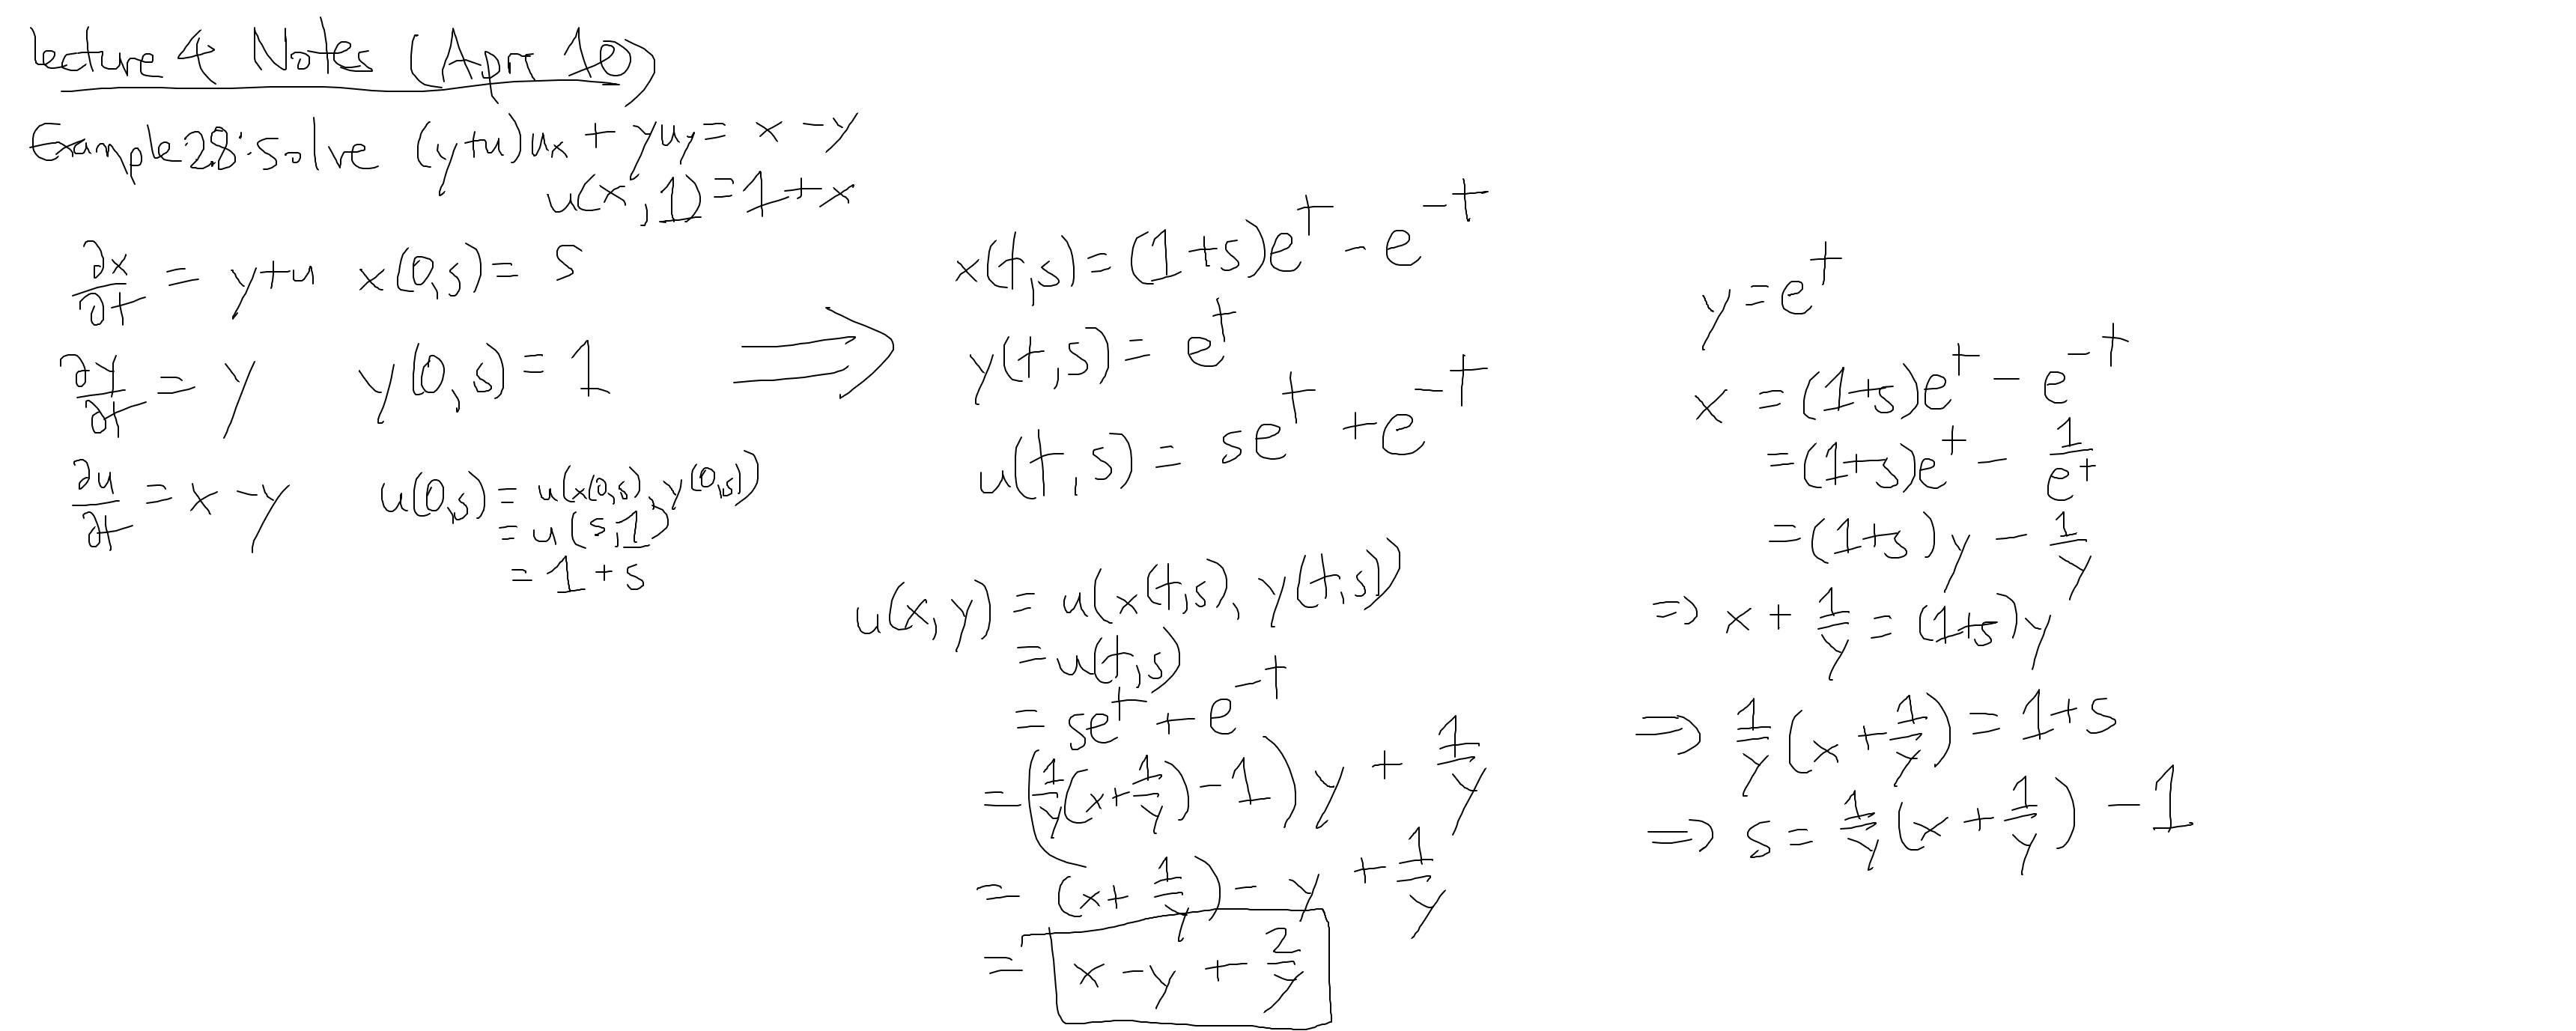 Lecture 4 Notes (Apr 10)
Example 2.8: solve (y+u)uₓ + yu_y = x - y
u(x,1) = 1+x
∂x/∂t = y+u   x(0,s) = s
∂y/∂t = y   y(0,s) = 1
∂u/∂t = x - y   u(0,s) = u(x(0,s), y(0,s))
= u(s,1)
= 1+s
⟹
x(t,s) = (1+s)e^t - e^-t
y(t,s) = e^t
u(t,s) = se^t + e^-t
u(x,y) = u(x(t,s), y(t,s))
= u(t,s)
= se^t + e^-t
= (1/y(x+1/y) - 1)y + 1/y
= (x + 1/y) - y + 1/y
= x - y + 2/y
y = e^t
x = (1+s)e^t - e^-t
= (1+s)e^t - 1/e^t
= (1+s)y - 1/y
⇒ x + 1/y = (1+s)y
⇒ 1/y(x + 1/y) = 1+s
⇒ s = 1/y(x + 1/y) - 1